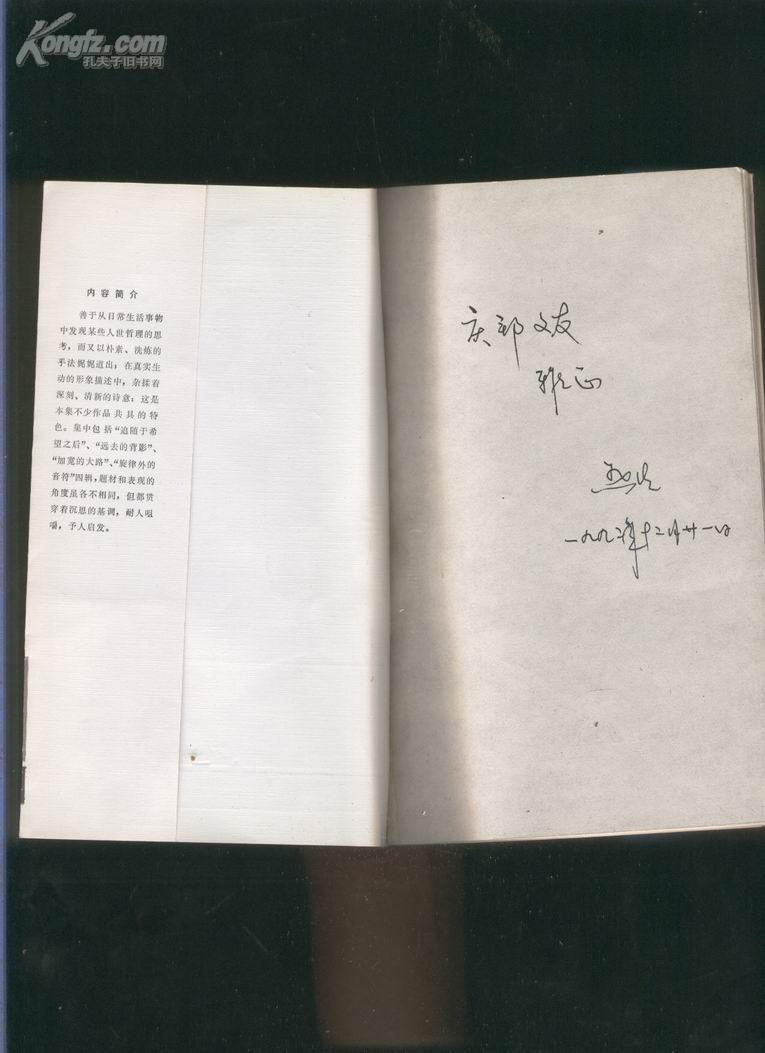 Kongfz.com
孔夫子旧书网
内容简介
善于从日常生活事物
中发现某些人世哲理的思
考，而又以朴素、洗炼的
手法娓娓道出；在真实生
动的形象描述中，杂揉着
深刻、清新的诗意：这是
本集不少作品共具的特
色。集中包括“追随于希
望之后”、“远去的背影”、
“加宽的大路”、“旋律外的
音符”四辑，题材和表现的
角度虽各不相同，但都贯
穿着沉思的基调，耐人咀
嚼，予人启发。
文友
雅正
一九九二年十二月廿一日